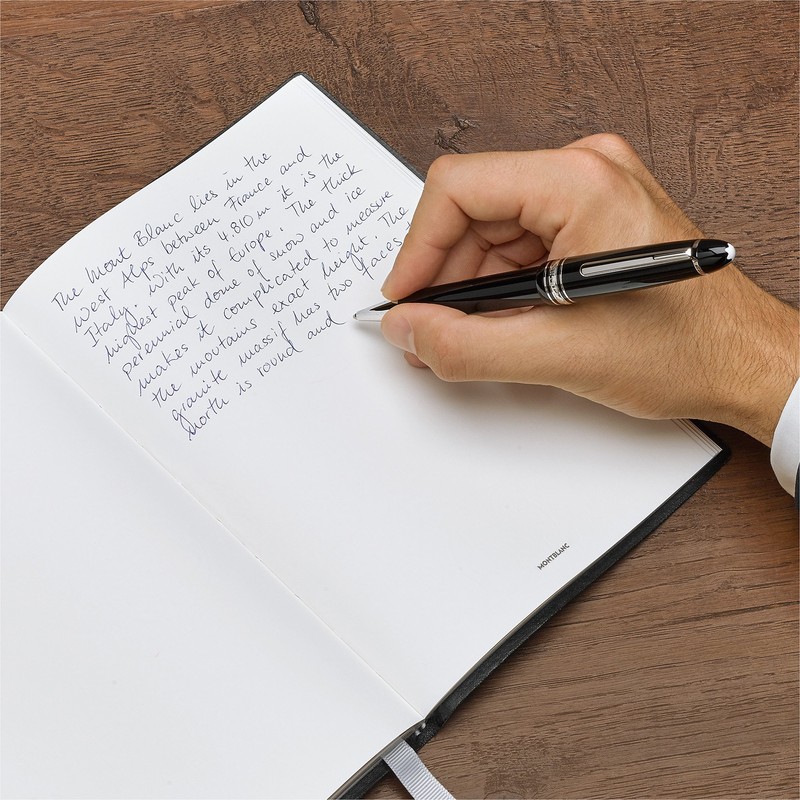 The Mont Blanc lies in the
West Alps between France and
Italy. With its 4.810 m it is the
highest peak of Europe. The thick
perennial dome of snow and ice
makes it complicated to measure
the moutains exact height. The
granite massif has two faces
North is round and
MONTBLANC